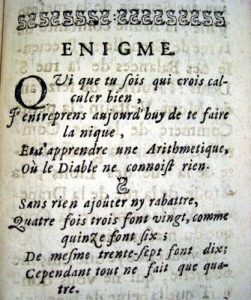 ENIGME.
QVi que tu ſois qui crois cal-
culer bien,
J'entreprens aujourd'huy de te faire
la nique,
Et t'apprendre une Arithmetique,
Où le Diable ne connoiſt rien.
Sans rien ajoûter ny rabattre,
Quatre fois trois font vingt, comme
quinze font ſix;
De meſme trente-ſept font dix;
Cependant tout ne fait que qua-
tre.